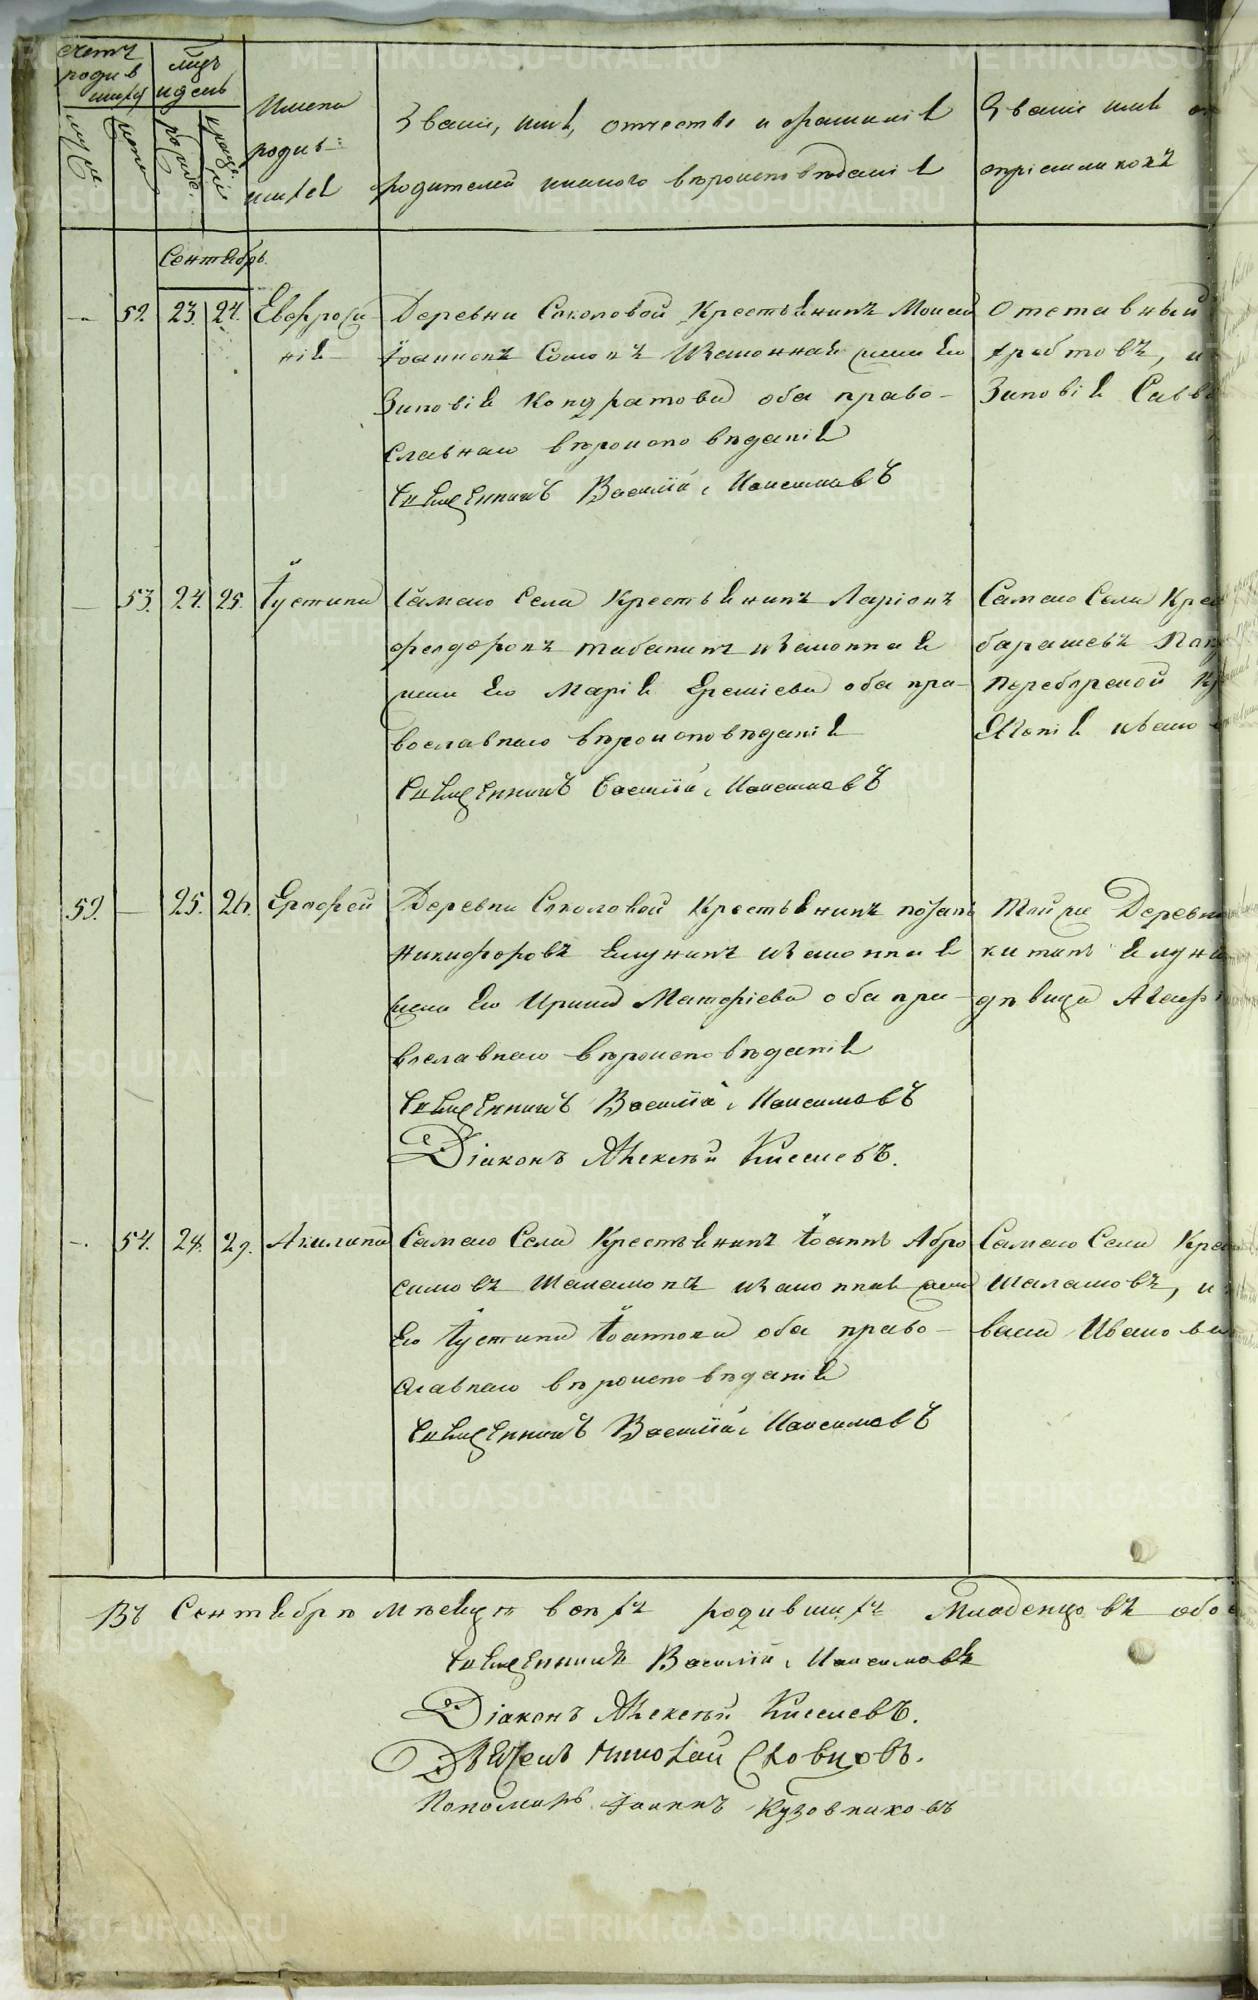 счетъ родив шихся
мѣцъ и день
муж.
жен.
рожде.
креще нiя
Имена родив: шихся
Званiе, имя, отчество и фамилiя
родителей и какого вѣроисповѣданiя
Званiе имя от
прiемниковъ
Сентябрь
— 52. 23. 24. Евфроси нiя
Деревни Соколовой Крестьянинъ Моисей
Iоанновъ и законная жена Его
Зиновiя Кондратова оба право-
славнаго вѣроисповѣданiя
Священникъ Василiй Максимовъ
Отставный
и
Зиновiя Савва
— 53. 24. 25. Iустина
Самаго Села Крестьянинъ Ларiонъ
Табанинъ и законная
жена Его Марiя Еремiева оба пра-
вославнаго вѣроисповѣданiя
Священникъ Василiй Максимовъ
Самаго Села Крес
барашевъ
Ксенiя Ивано
59. — 25. 26. Ерофей
Деревни Соколовой Крестьянинъ
Никифоровъ Елунинъ и законная
жена Его Ирина Матфiева оба пра-
вославнаго вѣроисповѣданiя
Священникъ Василiй Максимовъ
Дiаконъ Алексѣй Киселевъ.
Той же Деревни
китинъ Елуни
дѣвица Агафi
— 54. 28. 29. Акилина
Самаго Села Крестьянинъ Iоаннъ Абро
симовъ Шаламовъ и законная жена
Его Iустина Iоаннова оба право-
славнаго вѣроисповѣданiя
Священникъ Василiй Максимовъ
Самаго Села Крес
Шаламовъ, и
Иванова
Въ Сентябрѣ мѣсяцѣ всѣхъ родившихъ Младенцовъ обо
Священникъ Василiй Максимовъ
Дiаконъ Алексѣй Киселевъ.
Дьячекъ Николай Словцовъ.
Пономарь Iоаннъ Кузовниковъ
METRIKI.GASO-URAL.RU